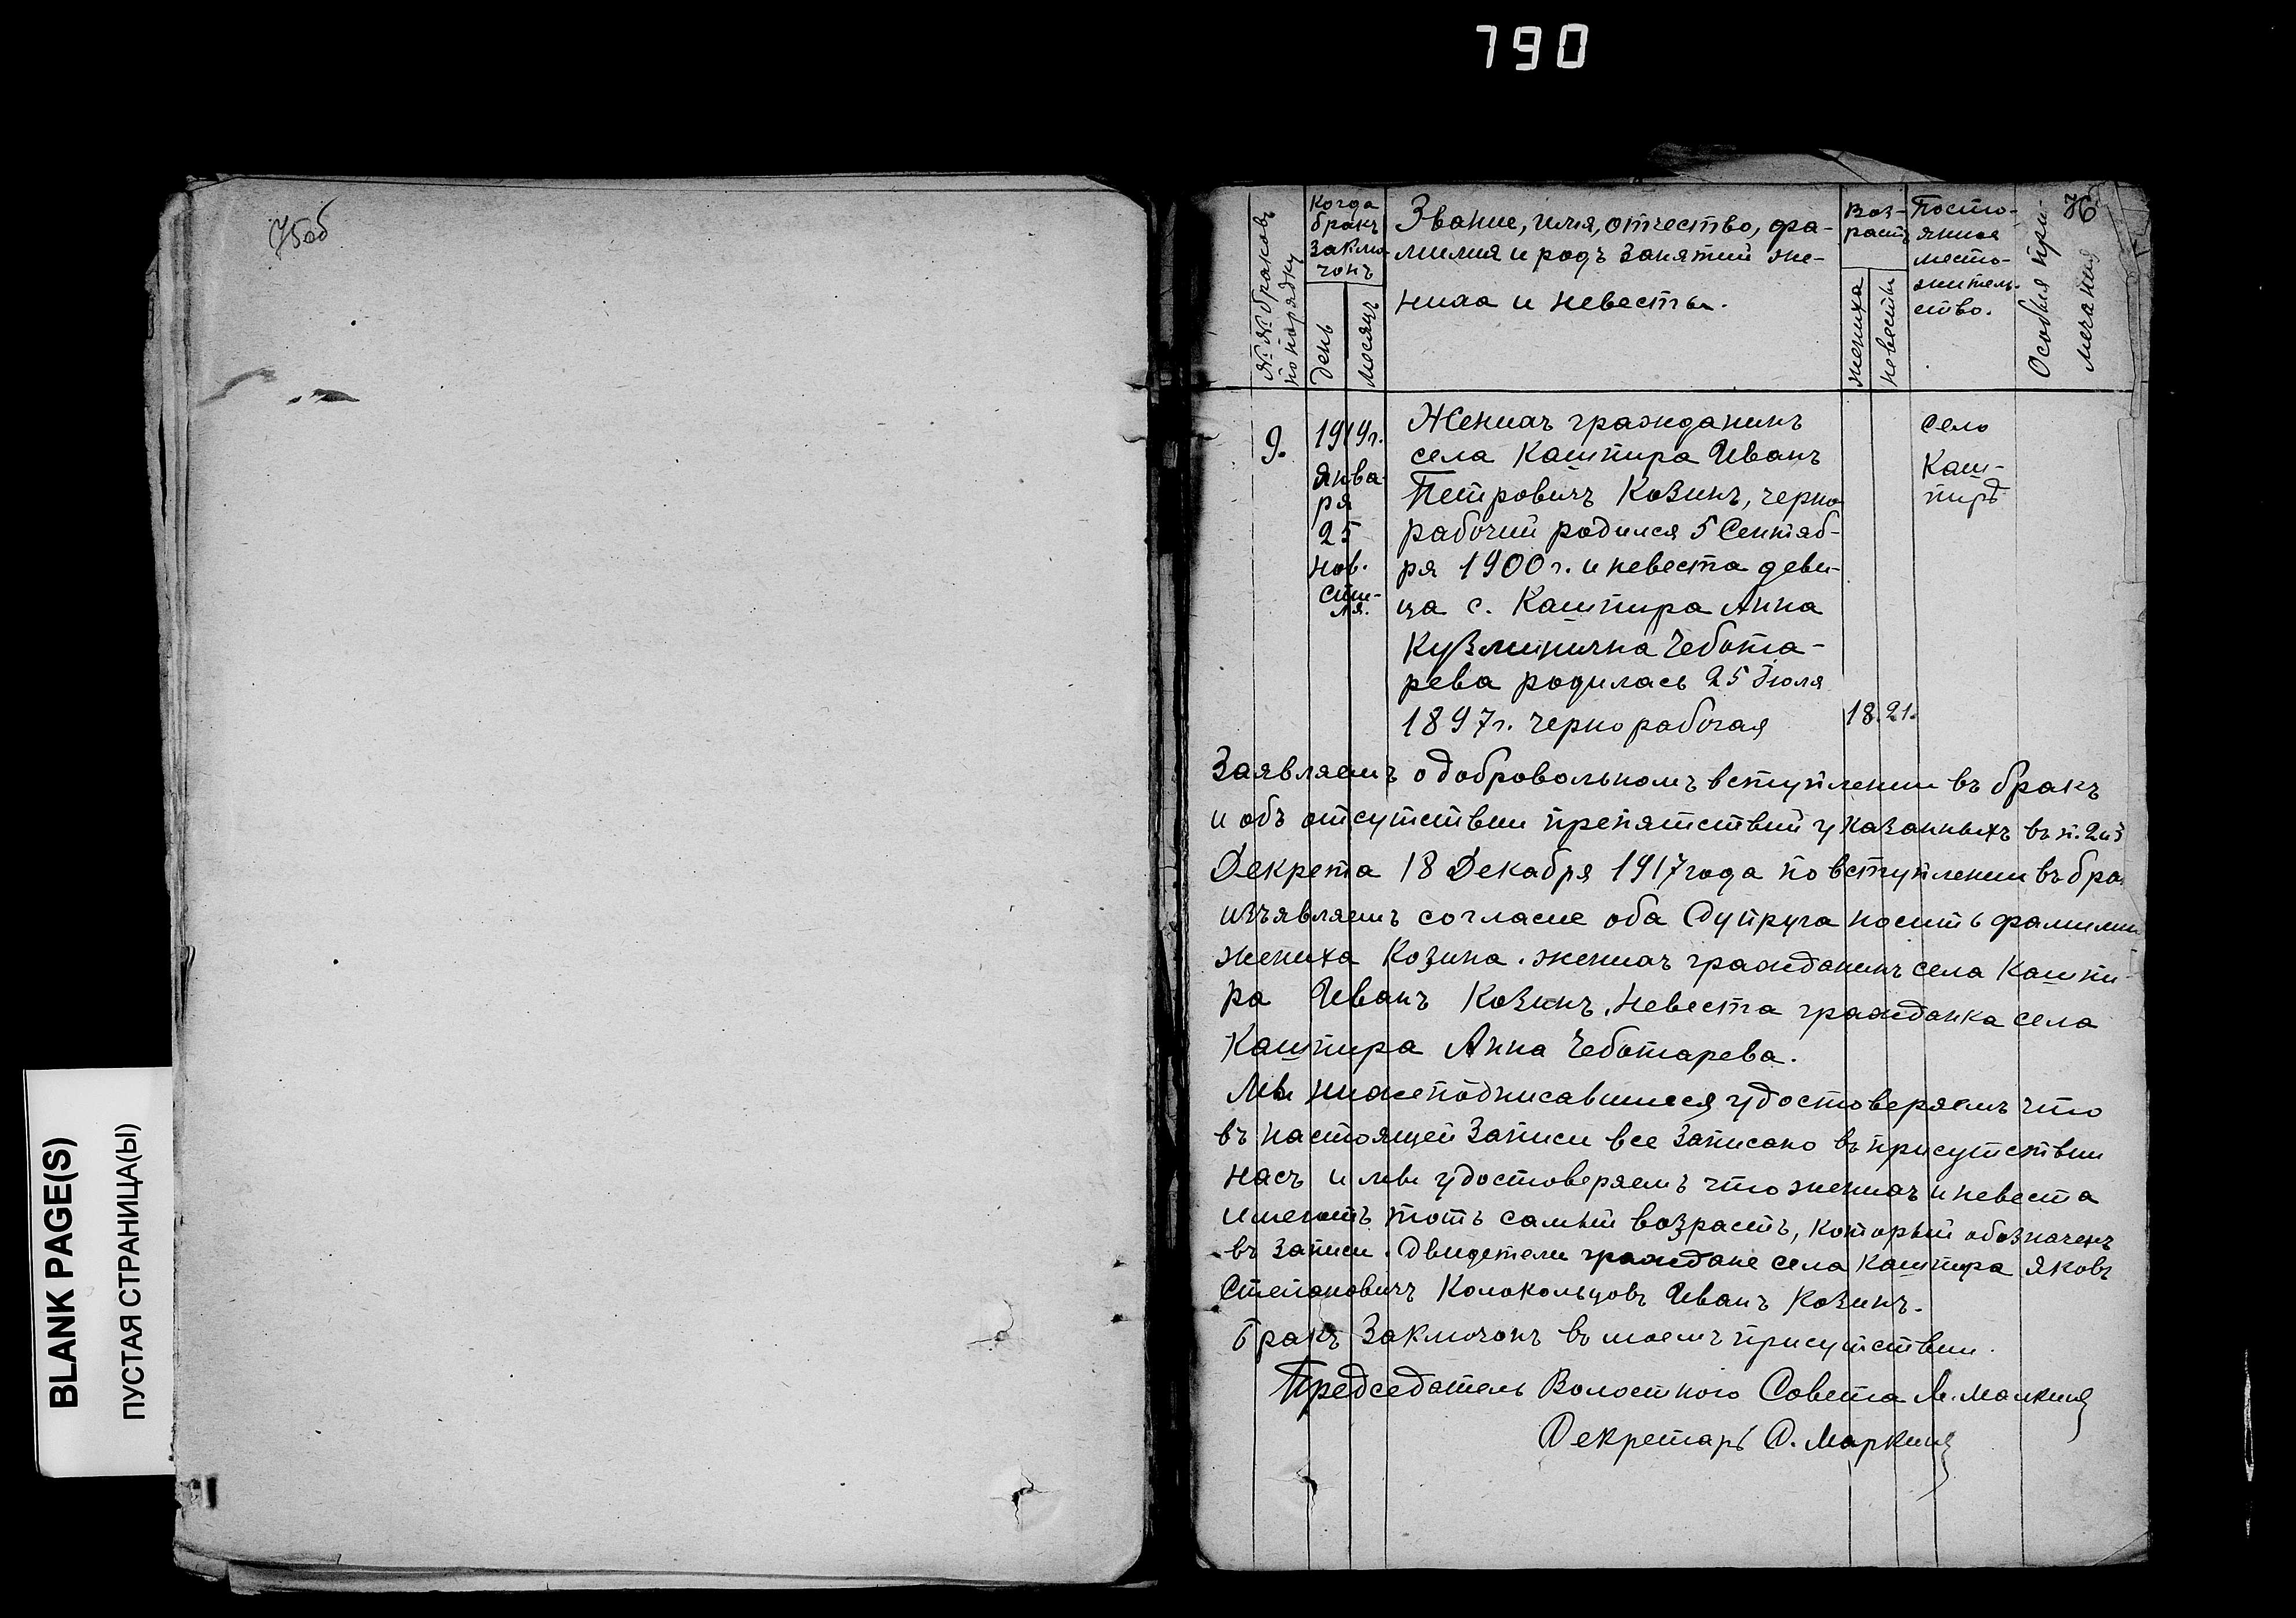 790
75об
BLANK PAGE(S)
ПУСТАЯ СТРАНИЦА(Ы)
76
№№ браковъ
по порядку
Когда
бракъ
заклю-
чонъ
день
месяцъ
Звание, имя, отчество, фа-
милия и родъ занятий же-
ниха и невесты.
Воз-
растъ
жениха
невесты
Посто-
янное
место-
житель-
ство.
Особыя при-
мечания
9.
1919г.
Янва-
ря
25
нов.
сти-
ля.
Женихъ гражданинъ
села Кашпира Иванъ
Петровичъ Козинъ, черно-
рабочий родился 5 Сентяб-
ря 1900 г. и невеста деви-
ца с. Кашпира Анна
Кузминична Чебота-
рева родилась 25 Июля
1897г. чернорабочая
18. 21.
село
Каш-
пиръ
Заявляемъ о добровольномъ вступлении въ бракъ
и объ отсутствии препятствий указанныхъ въ п. 2 и 3
Декрета 18 Декабря 1917 года по вступлении въ бра
изъявляемъ согласие оба Супруга носить фамилии
жениха Козина. женихъ гражданинъ села Кашпи-
ра Иванъ Козинъ, Невеста гражданка села
Кашпира Анна Чеботарева.
Мы нижеподписавшиеся удостоверяемъ что
въ настоящей записи все записано въ присутствии
насъ и мы удостоверяемъ что женихъ и невеста
имеютъ тотъ самый возрастъ, который обозначенъ
въ записи. Свидетели граждане села Кашпира Яковъ
Степановичъ Колокольцовъ Иванъ Козинъ.
Бракъ заключонъ въ моемъ присутствии.
Председатель Волостного Совета М. Малкинъ
Секретарь С. Маркинъ